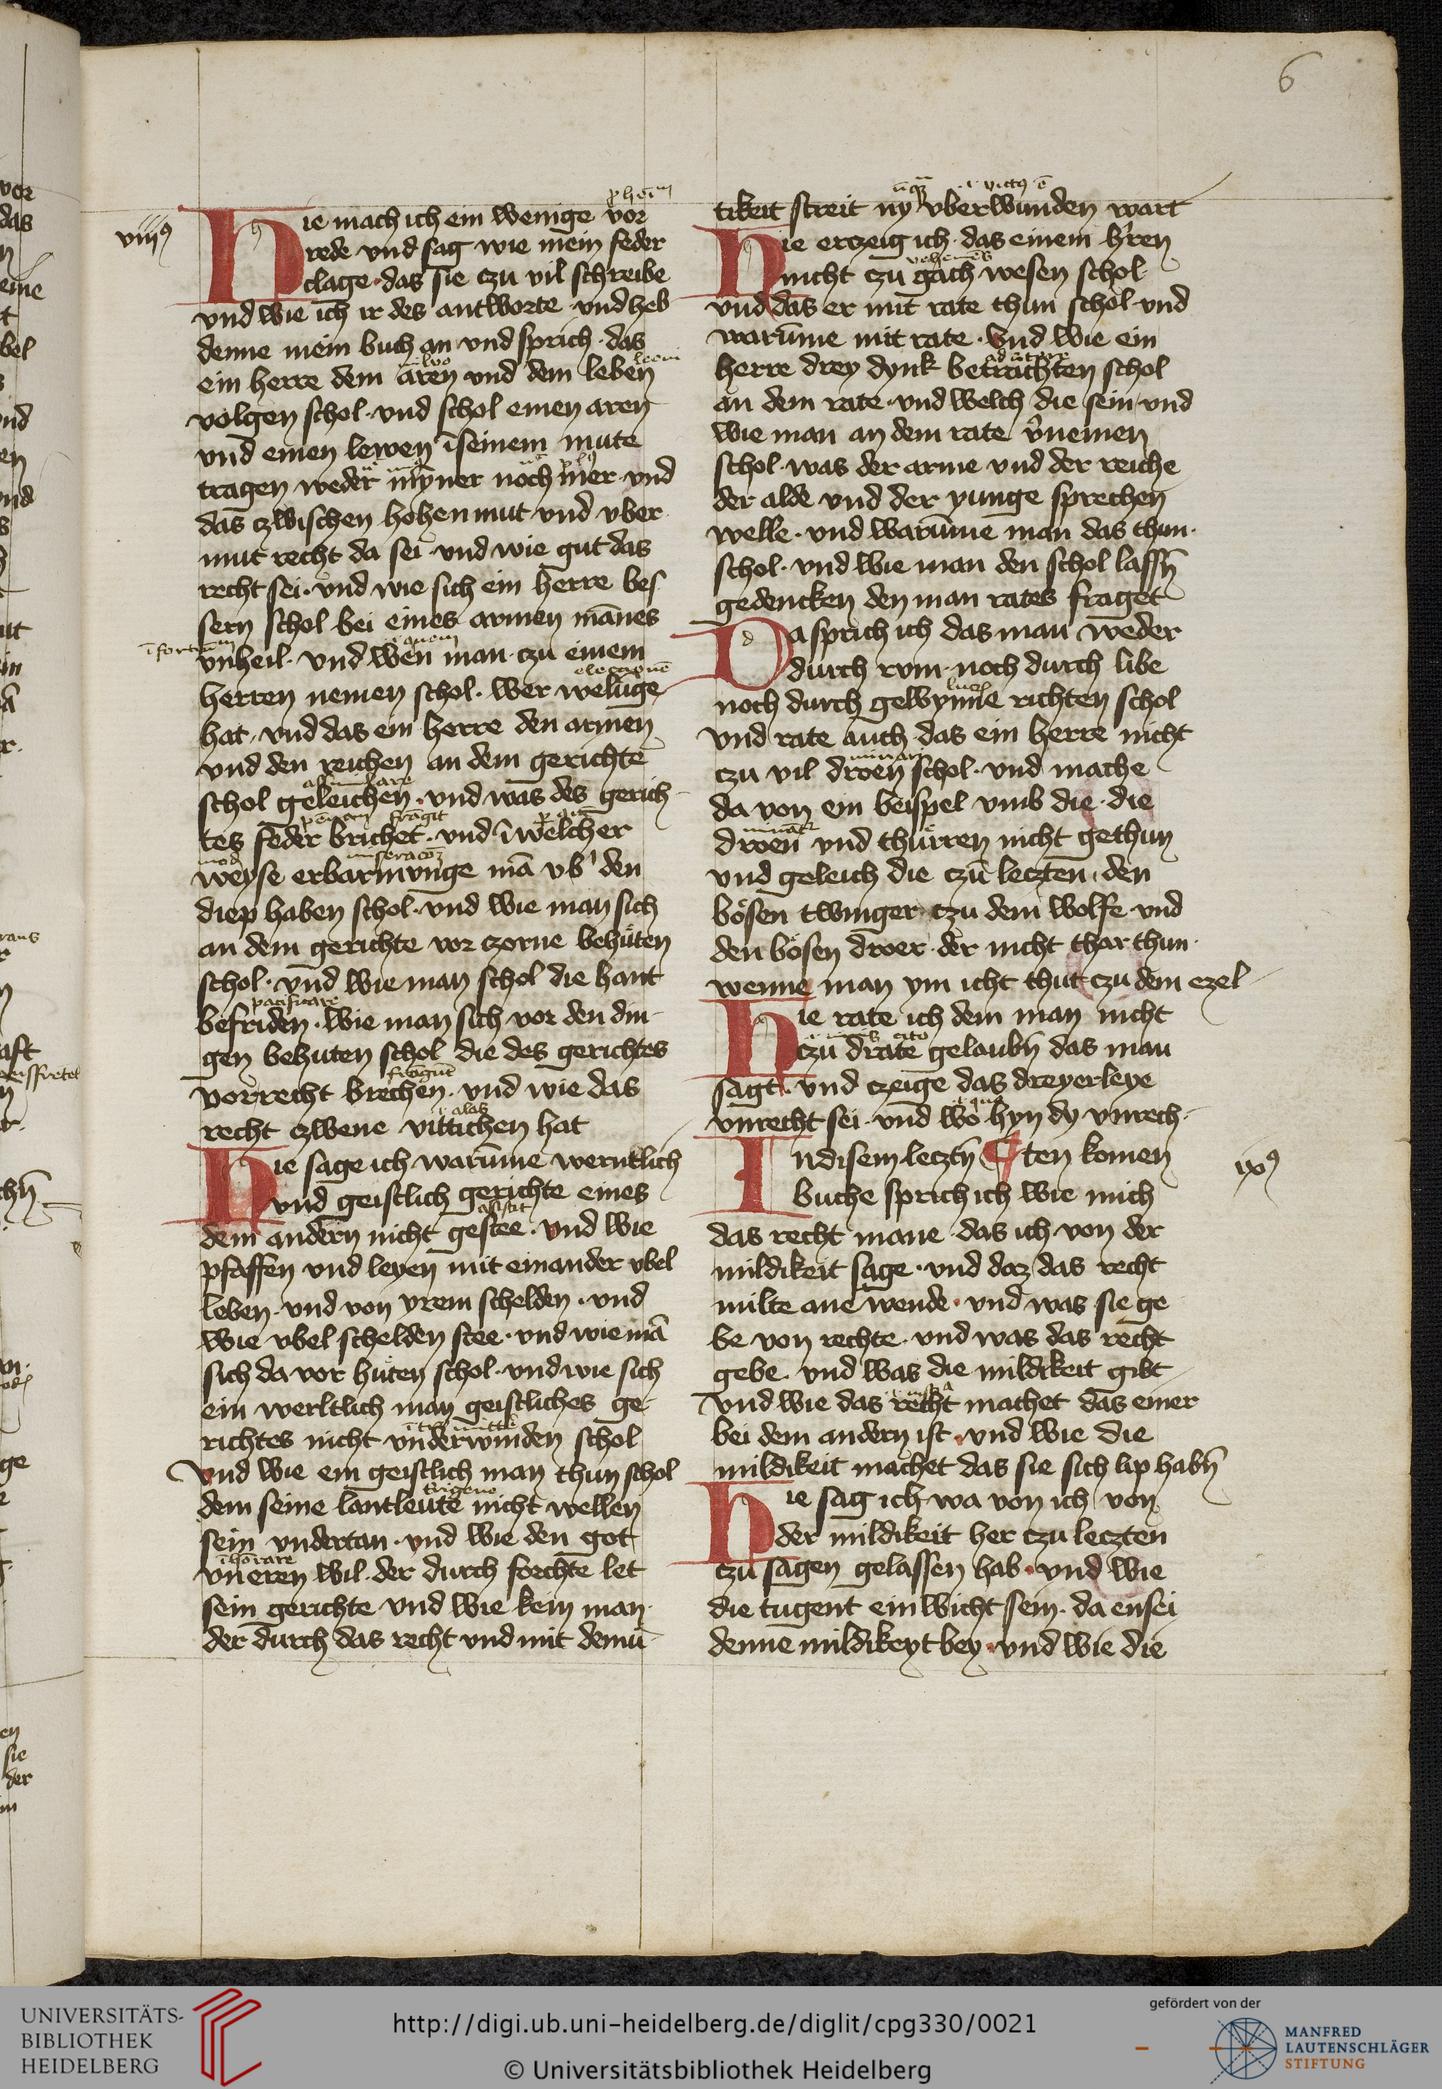 6
viiiꝰ
Hie mach ich ein wenige vor
rede vnd sag wie mein feder
clage · das sie czu vil schreibe
vnd wie ich ir des antworte · vnd heb
denne mein buch an vnd sprich · das
ein herre dem aren vnd dem leben
volgen schol · vnd schol einen aren
vnd einen lewen ī seinem mute
tragen weder myner noch mer · vnd
das czwischen hohen mut vnd vber
mut recht da sei · vnd wie gut das
recht sei · vnd wie sich ein herre bes
sern schol bei eines armen mānes
vnheil · vnd wen man · czu einem
herren nemen schol · wer welunge
hat · vnd das ein herre den armen
vnd den reichen an dem gerichte
schol geleichen · vnd was des gerich
tes feder brichet · vnd ī welcher
weyse erbarmvnge mā vb' den
diep haben schol · vnd wie man sich
an dem gerichte vor czorne behüten
schol · vnd wie man schol die hant
pacificare
befriden · wie man sich vor den din
gen behuten schol die des gerichtes
vorrecht brechen · vnd wie das
recht czwene vittichen hat
Hie sage ich warūme werntlich
vnd geistlich gerichte eines
dem andern nicht gestee · vnd wie
pfaffen vnd leyen mit einander vbel
leben · vnd von yrem schelden · vnd
wie vbel schelden stee · vnd wie mā
sich da vor hüten schol · vnd wie sich
ein werltlich man geistliches ge
richtes nicht vnderwinden schol
Vnd wie ein geistlich man thun schol
dem seine lantleute nicht wellen
sein vndertan · vnd wie den got
vneren wil · der durch forchte let
sein gerichte vnd wie kein man
der durch das recht vnd mit demu
tikeit streit ny vberwunden wart
Hie erczeig ich · das einem h'ren
nicht czu gach wesen schol
vnd das er mit rate thun schol · vnd
warūme mit rate · vnd wie ein
herre drey dynk betrachten schol
an dem rate · vnd welch die sein · vnd
wie man an dem rate v'nemen
schol · was der arme vnd der reiche
der alde vnd der yunge sprechen
welle · vnd warūme man das thun ·
schol · vnd wie man den schol lassn̄
gedencken den man rates fraget
Da sprich ich das man weder
durch rvm · noch durch libe
noch durch gewynne richten schol
Vnd rate auch das ein herre nicht
czu vil droen schol · vnd mache
da von ein beispel vmb die · die
droen vnd thürren nicht gethun
vnd geleich die czu leczten · den
bösen twinger czu dem wolfe · vnd
den bösen droer · der nicht thar thun ·
wenne man ym icht thut · czu dem ezel
Hie rate ich dem man nicht
czu drate gelaubn̄ das man
sagt · vnd czeige das dreyerleye
vnrecht sei · vnd wo hyn dy vnrech
ten komen
ixꝰ
In disem leczn̄
buche sprich ich wie mich
das recht mane · das ich von der
mildikeit sage · vnd daz das recht
milte ane wende · vnd was sie ge
be von rechte · vnd was das recht
gebe · vnd was die mildikeit gibt
Vnd wie das recht machet das einer
bei dem andern ist · vnd wie die
mildikeit machet das sie sich lip habn̄
Hie sag ich wa von ich von
der mildikeit her czu leczten
czu sagen gelassen hab · vnd wie
die tugent ein wicht sein · da ensei
denne mildikeyt bey · vnd wie die
UNIVERSITÄTS-
BIBLIOTHEK
HEIDELBERG
http://digi.ub.uni-heidelberg.de/diglit/cpg330/0021
© Universitätsbibliothek Heidelberg
gefördert von der
MANFRED
LAUTENSCHLÄGER
STIFTUNG